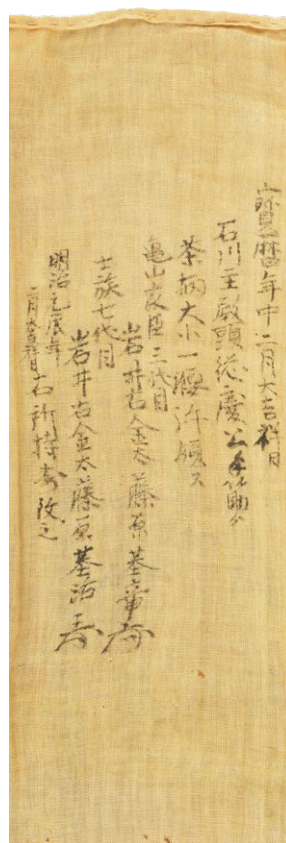 寳暦年中二月大吉祥日
石川主殿頭総慶公
茶柄大小一腰
亀山家臣三代目
岩井右金太藤原基章
士族七代目
岩井右金太藤原基治
明治元辰年
二月大吉祥日右所持改之